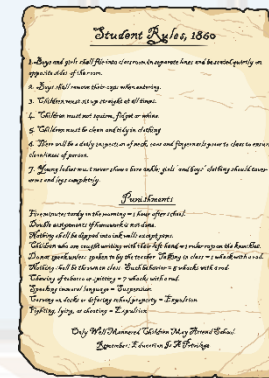 Student Rules, 1860
1. Boys and girls shall file into classroom in separate lines and be seated quietly on
opposite sides of the room.
2. Boys shall remove their caps when entering.
3. Children must sit up straight at all times.
4. Children must not squirm, fidget or whine.
5. Children must be clean and tidy in clothing
6. There will be a daily inspection of neck, ears and fingernails prior to class to ensure
cleanliness of person.
7. Young ladies must never show a bare ankle; girls' and boys' clothing should cover
arms and legs completely.
Punishments
Five minutes tardy in the morning = 1 hour after school
Double assignments if homework is not done.
Nothing shall be dipped into ink wells except pens.
Children who are caught writing with their left hand = ruler raps on the knuckles.
Do not speak unless spoken to by the teacher. Talking in class = 1 whack with a rod.
Nothing shall be thrown in class. Such behavior = 5 whacks with a rod.
Chewing of tobacco or spitting = 7 whacks with a rod.
Speaking immoral language = Suspension
Carving on desks or defacing school property = Expulsion
Fighting, lying, or cheating = Expulsion
Only Well Mannered Children May Attend School.
Remember: Education Is A Privilege